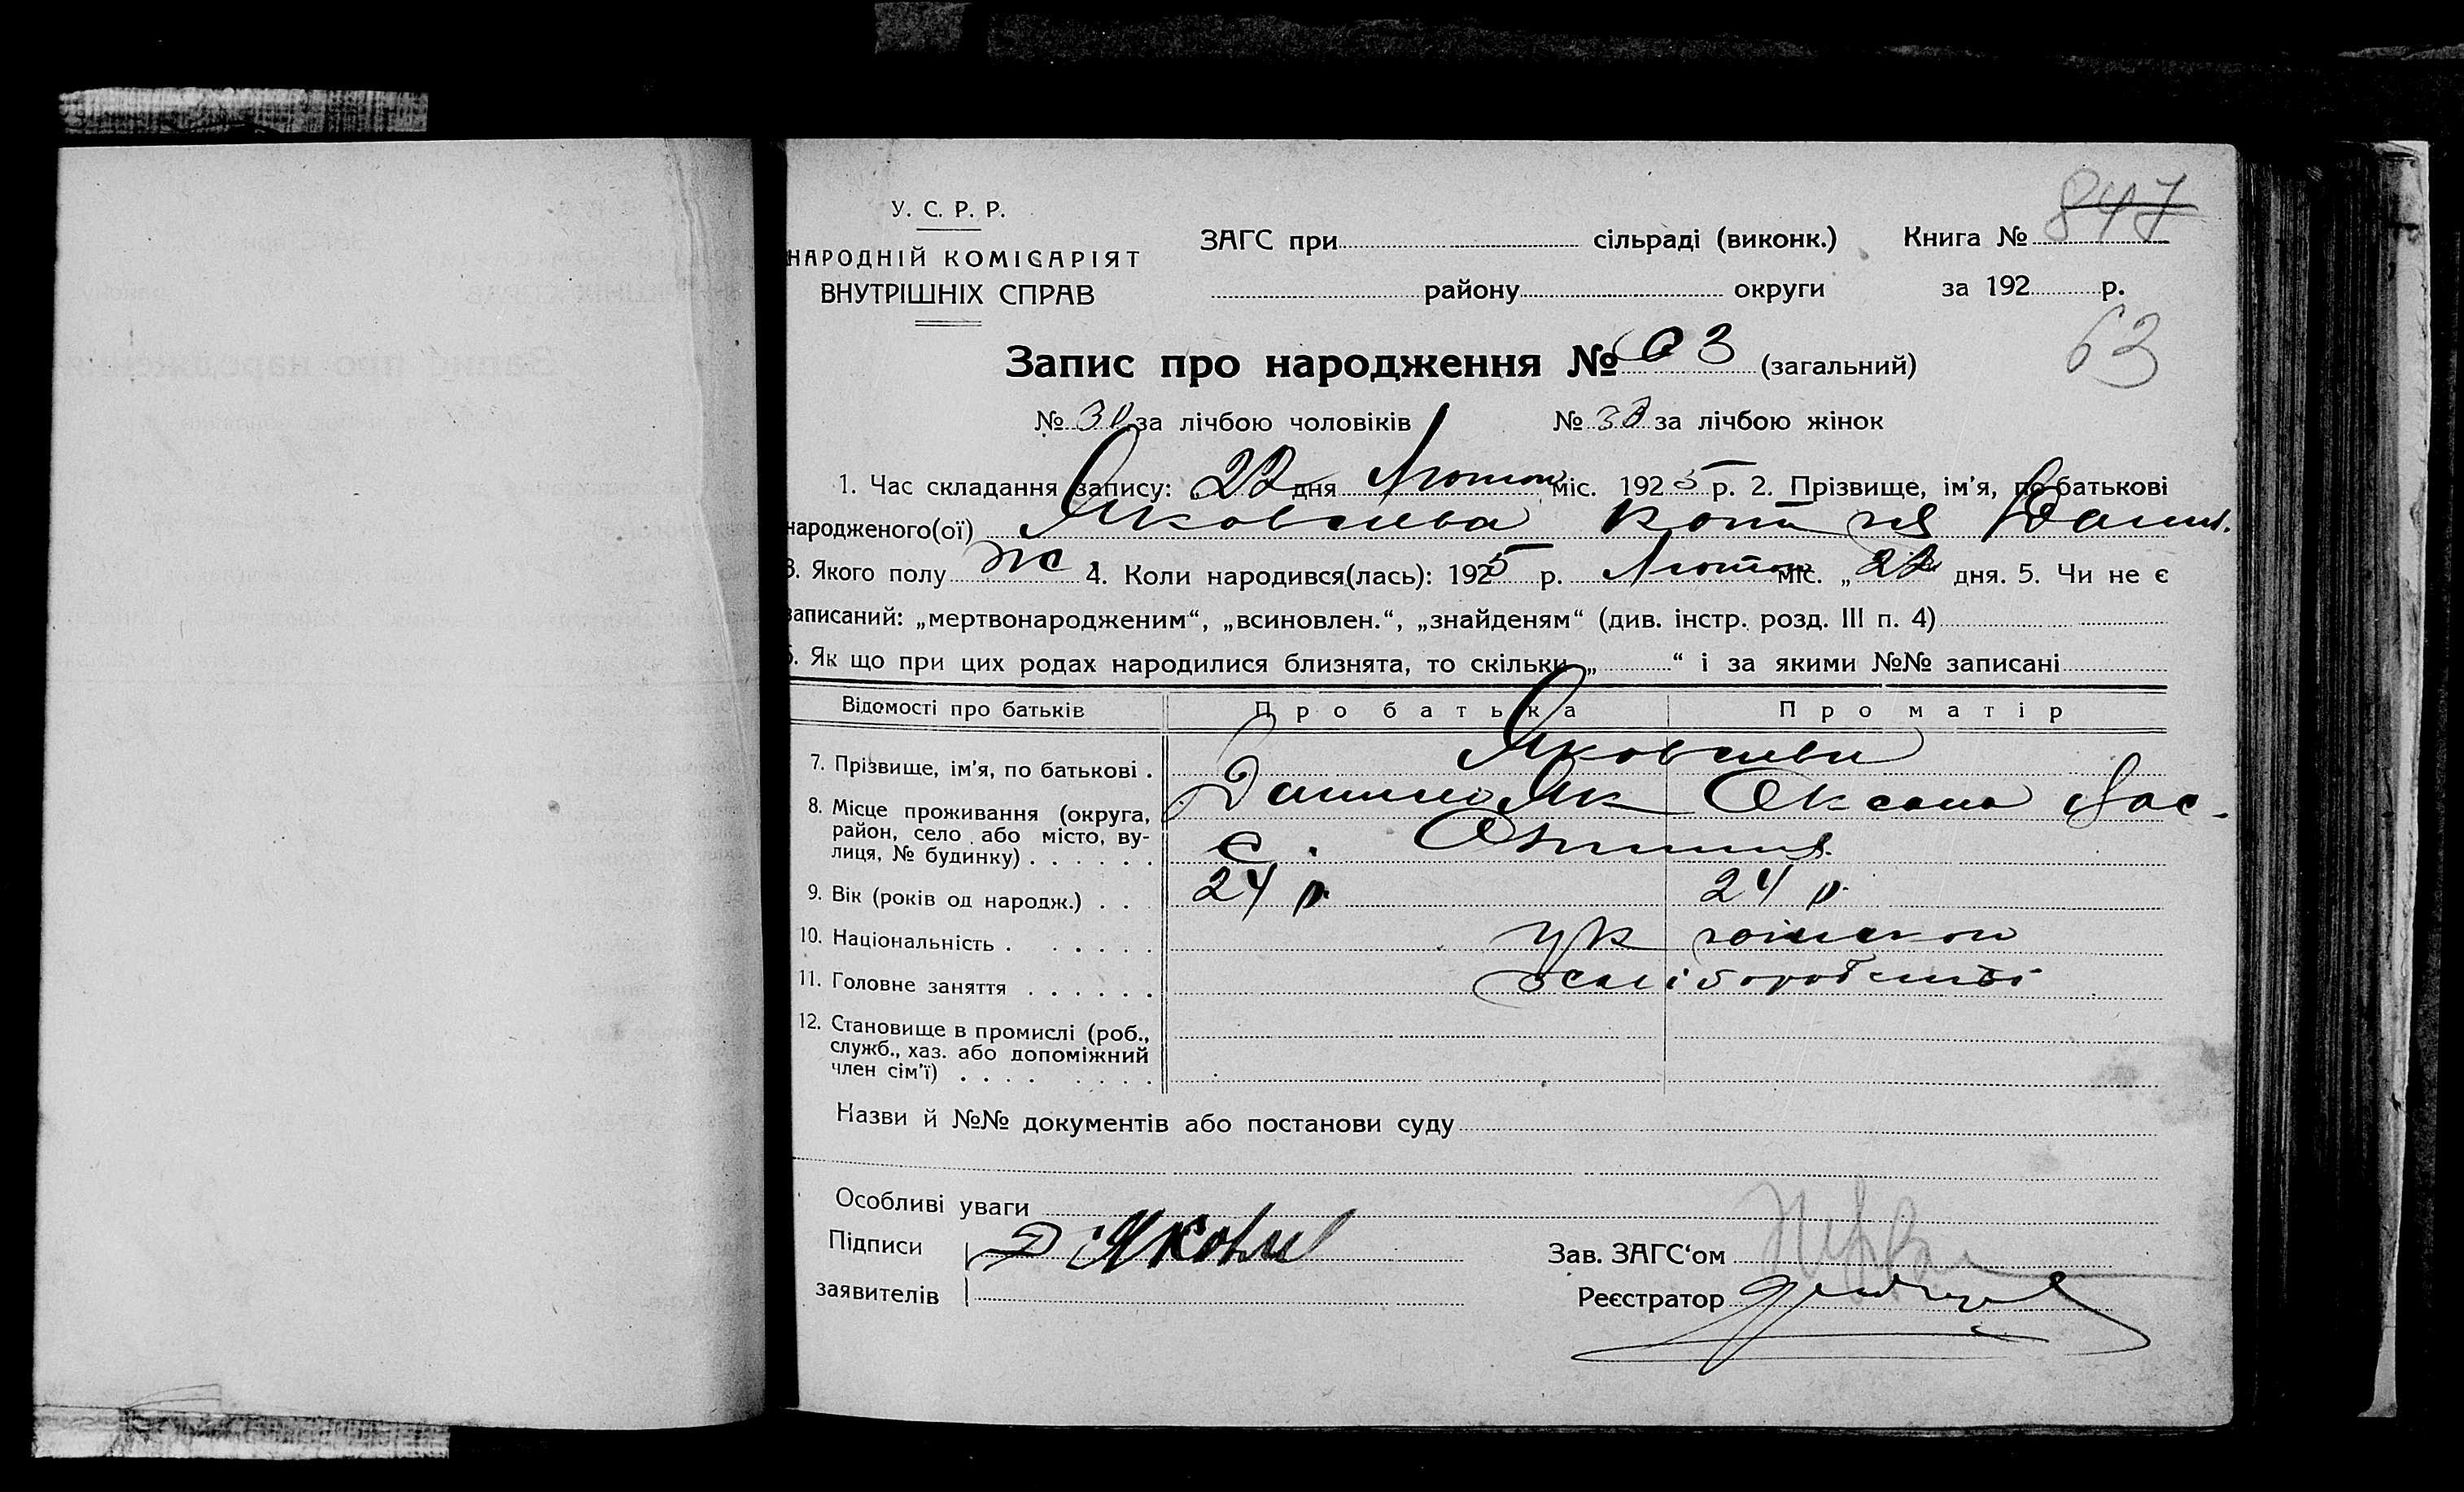 847
У. С. Р. Р.
НАРОДНІЙ КОМІСАРІЯТ
ВНУТРІШНІХ СПРАВ
ЗАГС при сільраді (виконк.) Книга №
району округи за 192 р.
63
Запис про народження № 63 (загальний)
№ 30 за лічбою чоловіків № 33 за лічбою жінок
1. Час складання запису: „22 дня Лютого міс. 1925 р. 2. Прізвище, ім'я, по батькові
народженого(ої) Яковлева Данил.
3. Якого полу ж 4. Коли народився(лась): 1925 р. Лютого міс. „ дня. 5. Чи не є
записаний: „мертвонародженим“, „всиновлен.“, „знайденям“ (див. інстр. розд. III п. 4)
6. Як що при цих родах народилися близнята, то скільки „ “ і за якими №№ записані
Відомості про батьків Про батька Про матір
7. Прізвище, ім'я, по батькові . Яковлеви
Данило Як Оксана Вас.
8. Місце проживання (округа,
район, село або місто, ву-
лиця, № будинку) . . . . . . с.
9. Вік (років од народж.) . . 24 р. 24 р.
10. Національність . . . . . . української
11. Головне заняття . . . . . . хліборобство
12. Становище в промислі (роб.,
служб., хаз. або допоміжний
член сім'ї) . . . . . . . .
Назви й №№ документів або постанови суду
Особливі уваги
Підписи Д Яковлев
заявителів
Зав. ЗАГС‘ом
Реєстратор